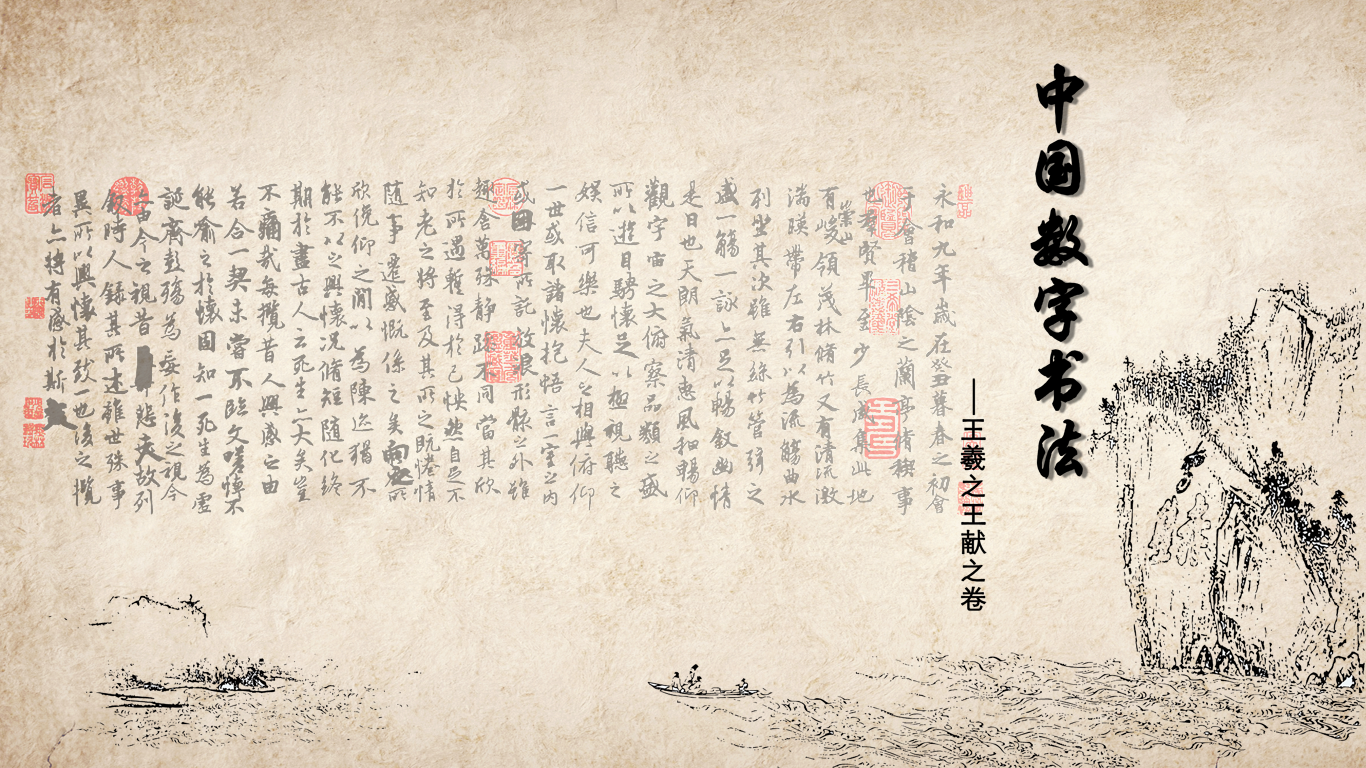 中国数字书法
—王羲之王献之卷
永和九年歲在癸丑暮春之初會
于會稽山陰之蘭亭脩禊事
也羣賢畢至少長咸集此地
有崇山峻領茂林脩竹又有清流激
湍暎帶左右引以為流觴曲水
列坐其次雖無絲竹管弦之
盛一觴一詠亦足以暢敘幽情
是日也天朗氣清惠風和暢仰
觀宇宙之大俯察品類之盛
所以遊目騁懷足以極視聽之
娛信可樂也夫人之相與俯仰
一世或取諸懷抱悟言一室之內
或因寄所託放浪形骸之外雖
趣舍萬殊靜躁不同當其欣
於所遇暫得於己怏然自足不
知老之將至及其所之既惓情
隨事遷感慨係之矣向之所
欣俛仰之閒以為陳迹猶不
能不以之興懷況脩短隨化終
期於盡古人云死生亦大矣豈
不痛哉每攬昔人興感之由
若合一契未嘗不臨文嗟悼不
能喻之於懷固知一死生為虛
誕齊彭殤為妄作後之視今
亦由今之視昔悲夫故列
敘時人錄其所述雖世殊事
異所以興懷其致一也後之攬
者亦將有感於斯文